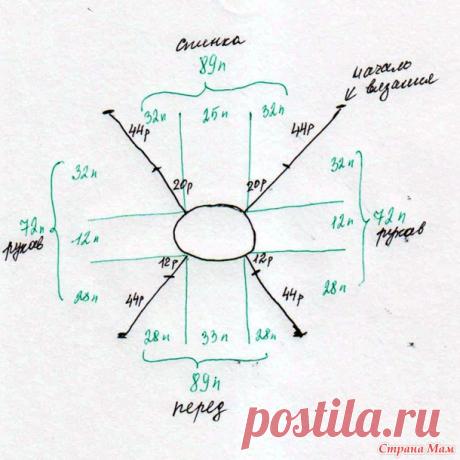 спинка
89п
начало
вязания
32п 25п 32п
44р 44р
20р 20р
32п 32п
72п рукав
12п 12п
72п рукав
28п 28п
12р 12р
44р 44р
28п 33п 28п
89п
перед
postila.ru
Страна Мам